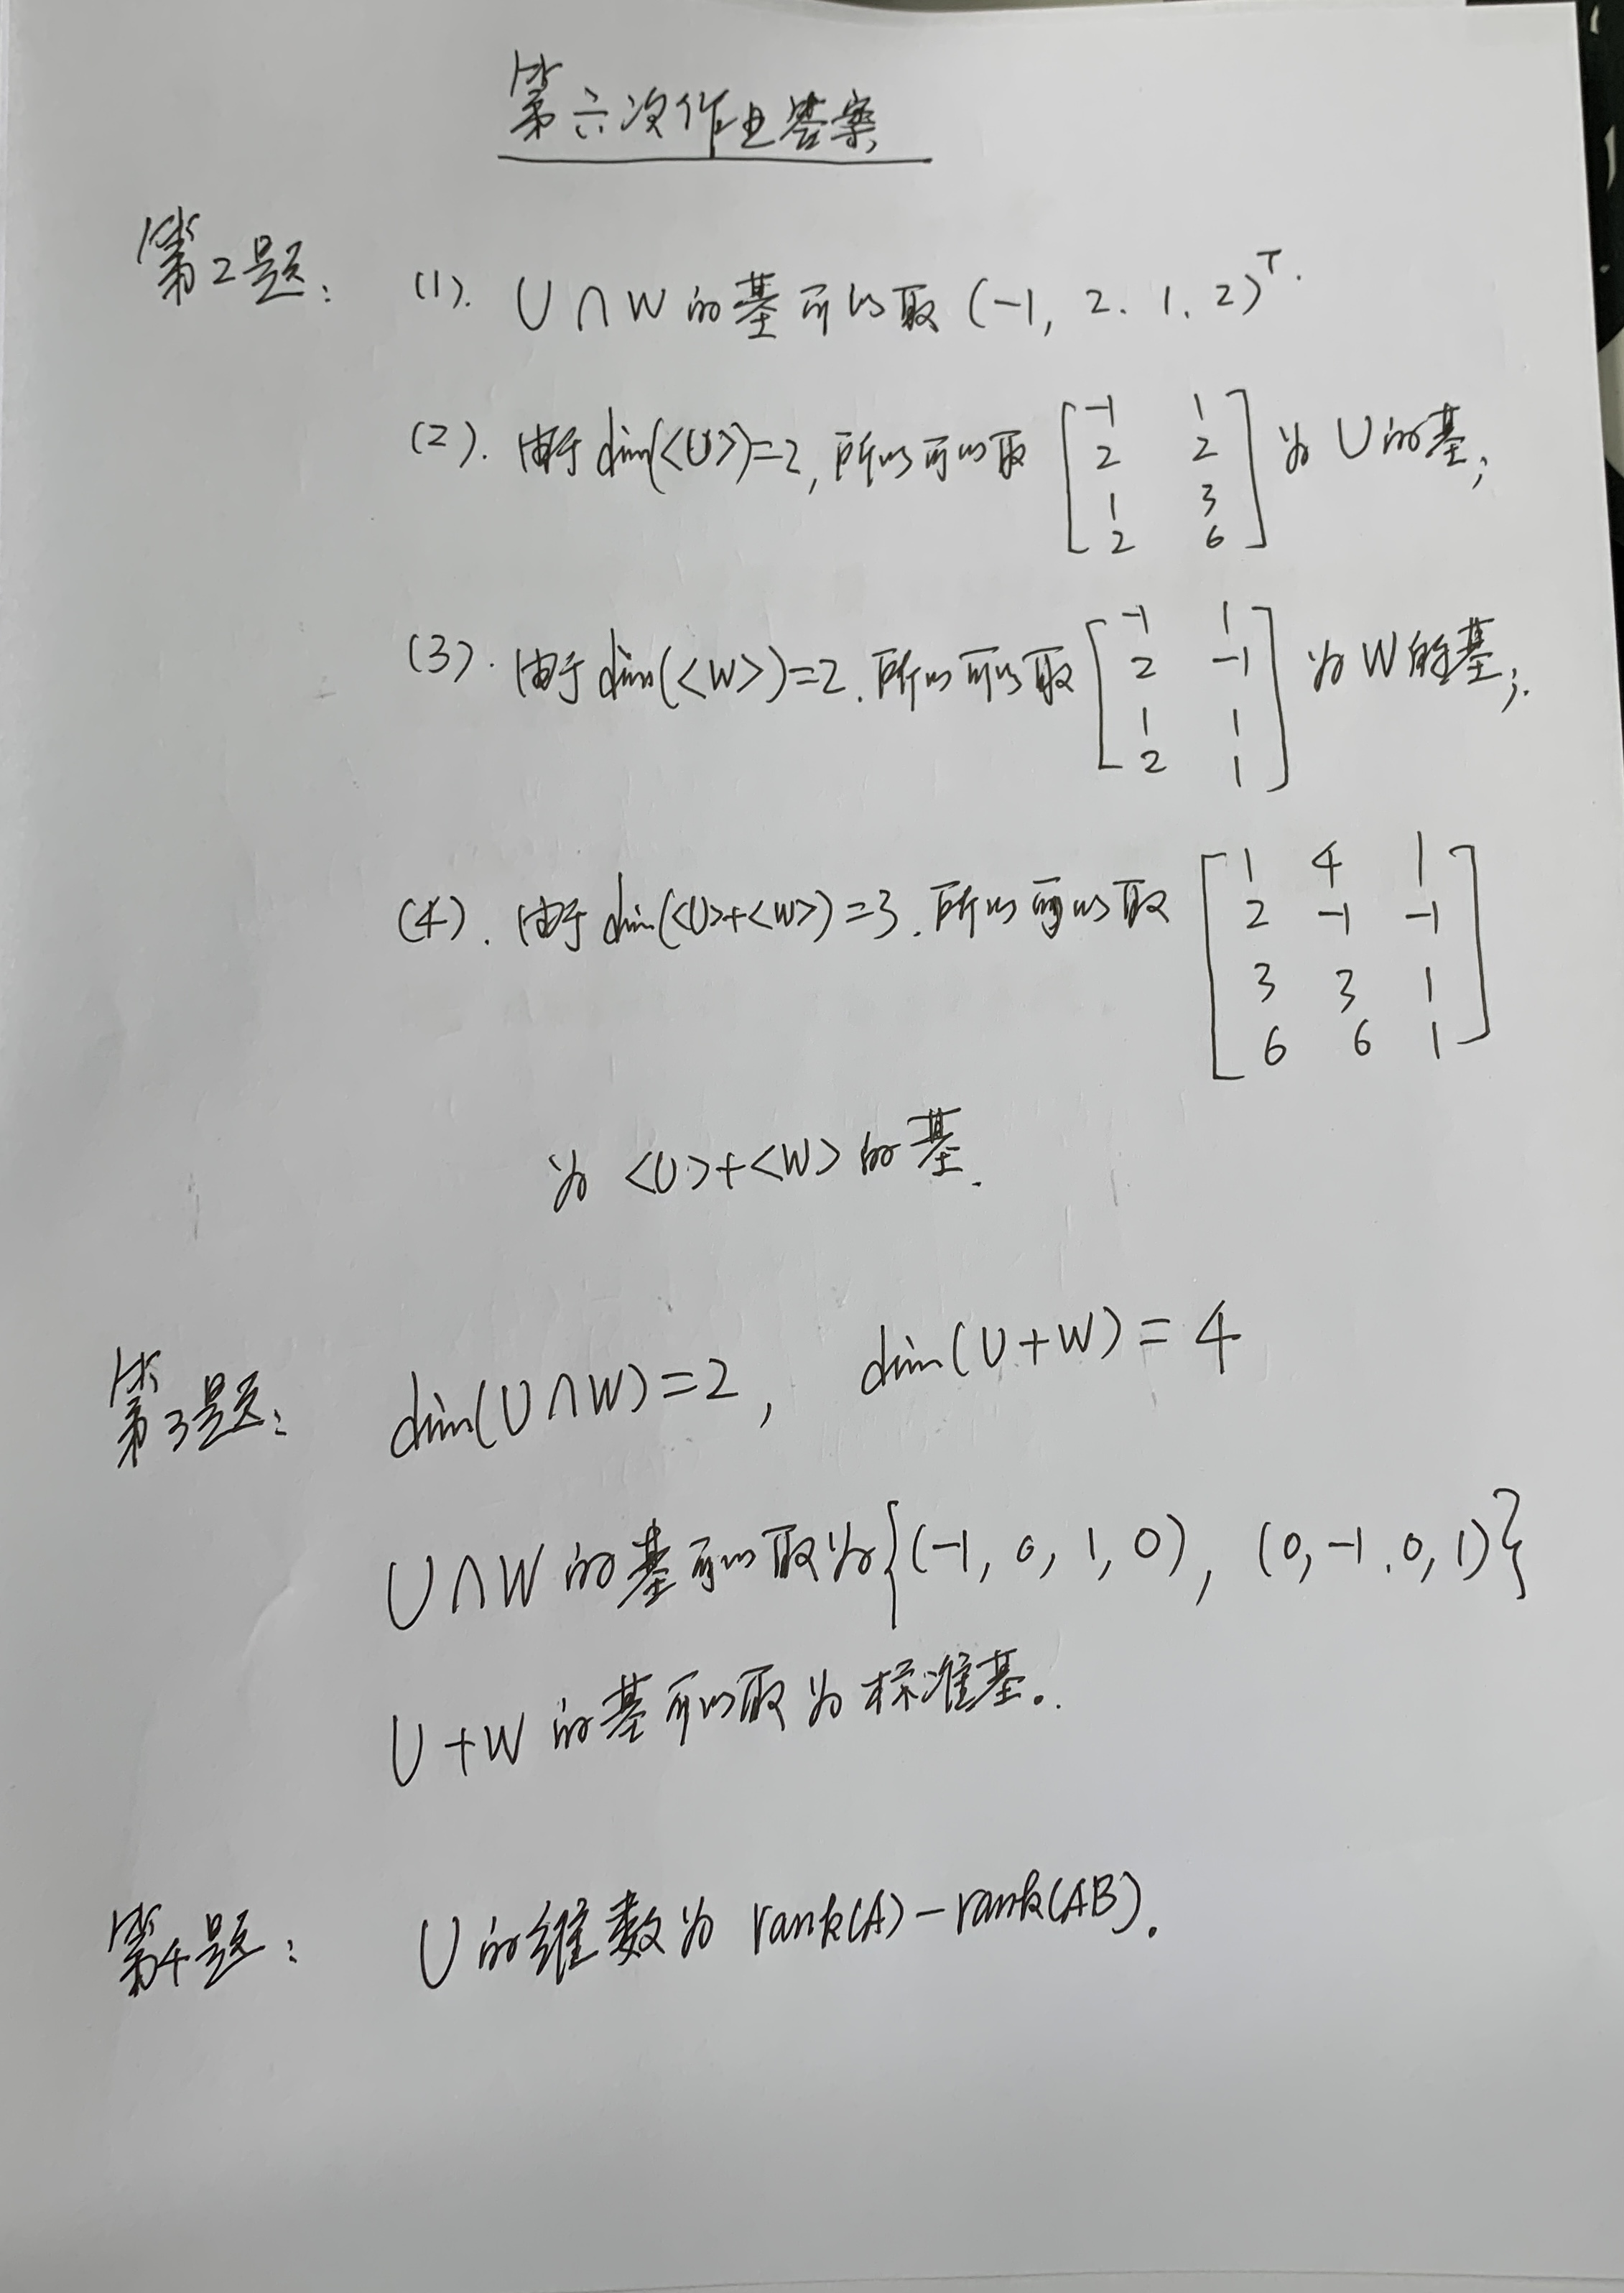 第六次作业答案
第2题: (1). U∩W的基可以取(-1, 2. 1. 2)ᵀ.
(2). 由于dim(<U>)=2, 所以可以取 [-1 1; 2 2; 1 3; 2 6] 为U的基;
(3). 由于dim(<W>)=2. 所以可以取 [-1 1; 2 -1; 1 1; 2 1] 为W的基;.
(4). 由于dim(<U>+<W>)=3. 所以可以取 [1 4 1; 2 -1 -1; 3 3 1; 6 6 1]
为 <U>+<W> 的基.
第3题: dim(U∩W)=2, dim(U+W)=4
U∩W的基可以取为{(-1, 0, 1, 0), (0, -1. 0, 1)}
U+W的基可以取为标准基。.
第4题: U的维数为 rank(A)-rank(AB).